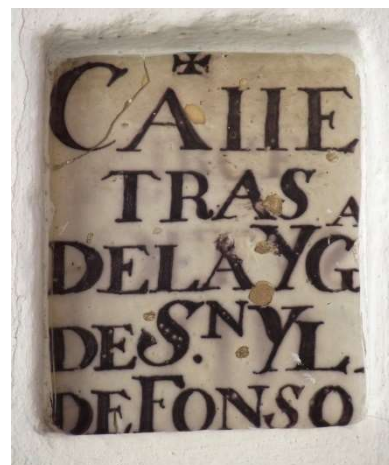 CAllE
TRAS
DE LA YGA
DE S.N YL.
DEFONSO